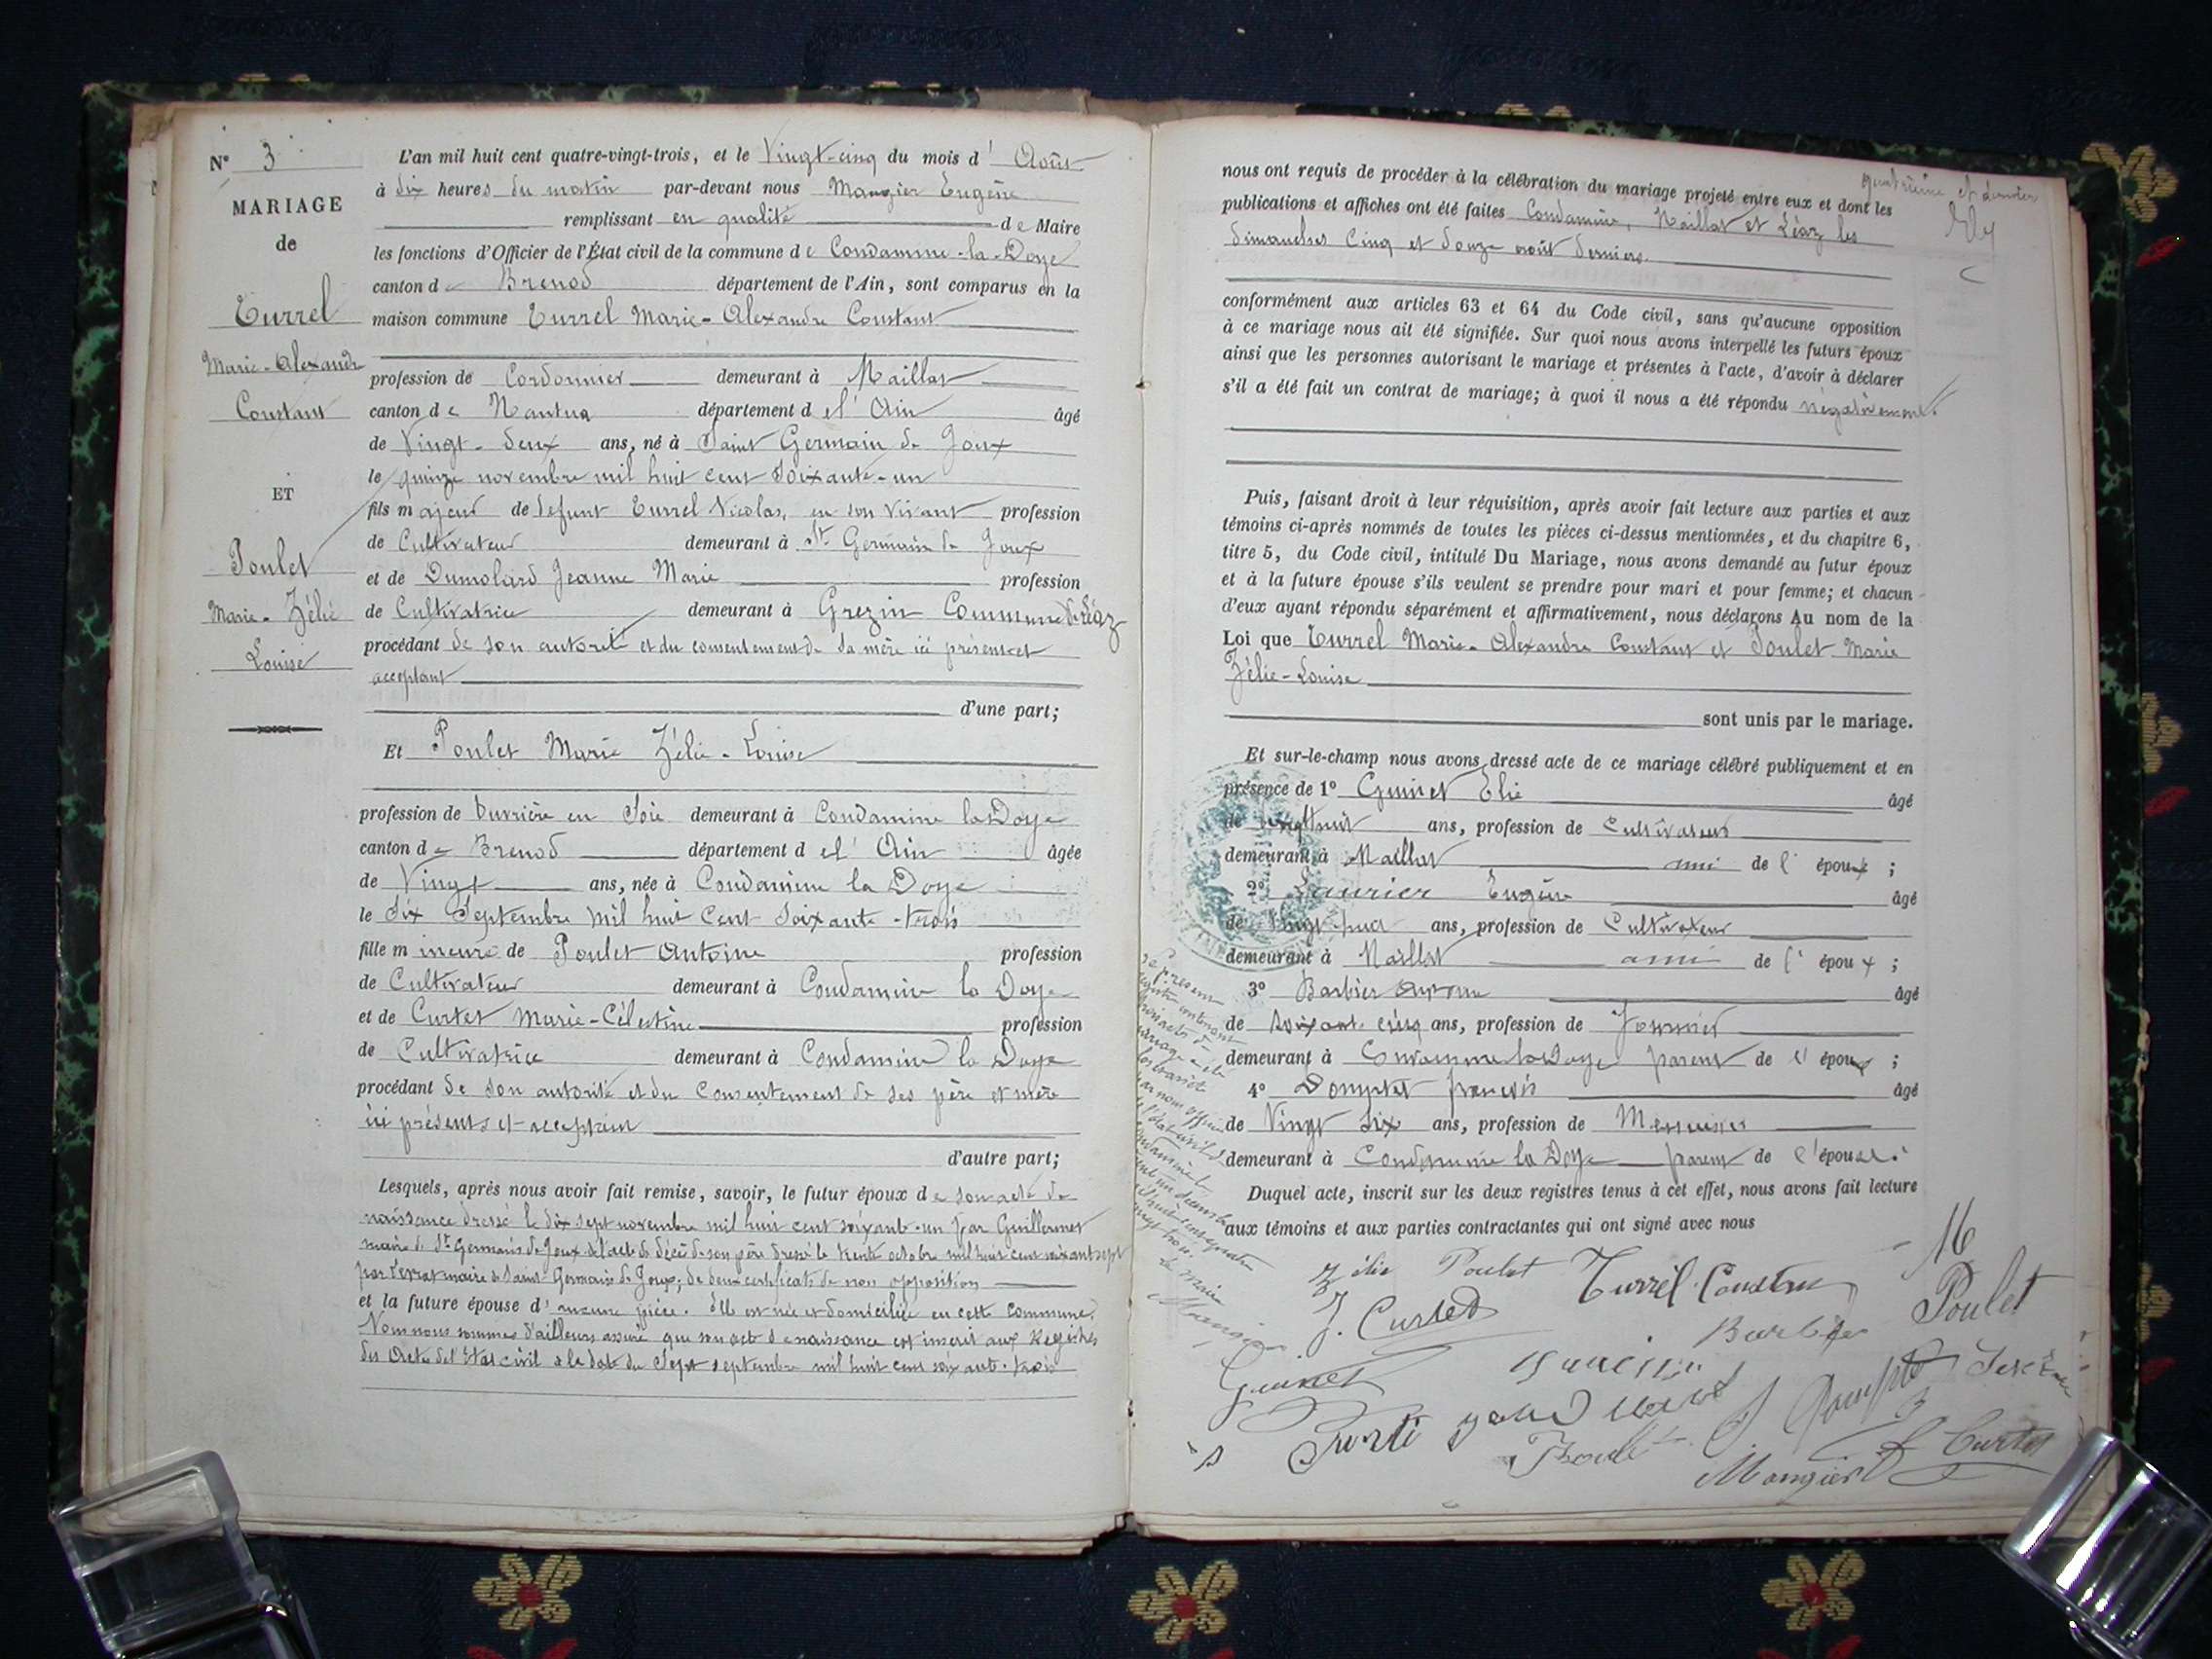 N° 3
MARIAGE
de
Turrel
Marie-Alexandre
Constant
ET
Poulet
Marie-Zélie
Louise
L'an mil huit cent quatre-vingt-trois, et le Vingt-cinq du mois d' Août
à dix heures du matin par-devant nous Mangier Eugène
remplissant en qualité de Maire
les fonctions d'Officier de l'État civil de la commune de Condamine-la-Doye
canton de Brenod département de l'Ain, sont comparus en la
maison commune Turrel Marie-Alexandre Constant
profession de Cordonnier demeurant à Maillat
canton de Nantua département de l'Ain âgé
de Vingt-deux ans, né à Saint Germain de Joux
le quinze novembre mil huit cent soixante-un
fils majeur de défunt Turrel Nicolas, en son vivant profession
de Cultivateur demeurant à St Germain de Joux
et de Dumolard Jeanne Marie profession
de Cultivatrice demeurant à Grezin Commune de Léaz
procédant de son autorité et du consentement de sa mère ici présente et
acceptant
d'une part;
Et Poulet Marie Zélie-Louise
profession de Ouvrière en Soie demeurant à Condamine la Doye
canton de Brenod département de l'Ain âgée
de Vingt ans, née à Condamine la Doye
le Six Septembre mil huit cent soixante-trois
fille mineure de Poulet Antoine profession
de Cultivateur demeurant à Condamine la Doye
et de Curtet Marie-Célestine profession
de Cultivatrice demeurant à Condamine la Doye
procédant de son autorité et du Consentement de ses père et mère
ici présents et acceptant
d'autre part;
Lesquels, après nous avoir fait remise, savoir, le futur époux de son acte de
naissance dressé le dix sept novembre mil huit cent soixante-un par Guillermet
maire de St Germain de Joux de l'acte de décès de son père dressé le trente octobre mil huit cent soixante sept
par maire de Saint-Germain de Joux; de deux certificats de non opposition
et la future épouse d'aucune pièce. Elle est née et domiciliée en cette commune.
Nous nous sommes d'ailleurs assuré que son acte de naissance est inscrit aux Registres
des Actes de l'Etat civil à la date du Sept septembre mil huit cent soixante-trois
quatrième et dernier
nous ont requis de procéder à la célébration du mariage projeté entre eux et dont les
publications et affiches ont été faites Condamine, Maillat et Léaz les
dimanches Cinq et douze août derniers
conformément aux articles 63 et 64 du Code civil, sans qu'aucune opposition
à ce mariage nous ait été signifiée. Sur quoi nous avons interpellé les futurs époux
ainsi que les personnes autorisant le mariage et présentes à l'acte, d'avoir à déclarer
s'il a été fait un contrat de mariage; à quoi il nous a été répondu négativement.
Puis, faisant droit à leur réquisition, après avoir fait lecture aux parties et aux
témoins ci-après nommés de toutes les pièces ci-dessus mentionnées, et du chapitre 6,
titre 5, du Code civil, intitulé Du Mariage, nous avons demandé au futur époux
et à la future épouse s'ils veulent se prendre pour mari et pour femme; et chacun
d'eux ayant répondu séparément et affirmativement, nous déclarons Au nom de la
Loi que Turrel Marie-Alexandre Constant et Poulet Marie
Zélie-Louise
sont unis par le mariage.
Et sur-le-champ nous avons dressé acte de ce mariage célébré publiquement et en
présence de 1° Guinet Elie âgé
de vingt huit ans, profession de Cultivateur
demeurant à Maillat ami de l'époux ;
2° Eugène âgé
de ans, profession de Cultivateur
demeurant à Maillat ami de l'époux ;
3° Barbier âgé
de soixante cinq ans, profession de
demeurant à Condamine la Doye parent de l'époux ;
4° François âgé
de Vingt six ans, profession de Menuisier
demeurant à Condamine la Doye parent de l'épouse.
Duquel acte, inscrit sur les deux registres tenus à cet effet, nous avons fait lecture
aux témoins et aux parties contractantes qui ont signé avec nous
Zélie Poulet Turrel Constan M Poulet
J. Curtet
Guinet
Curtet
Mangier
le présent
registre contenant
trois actes de
mariage a été
Le Maire
Mangier